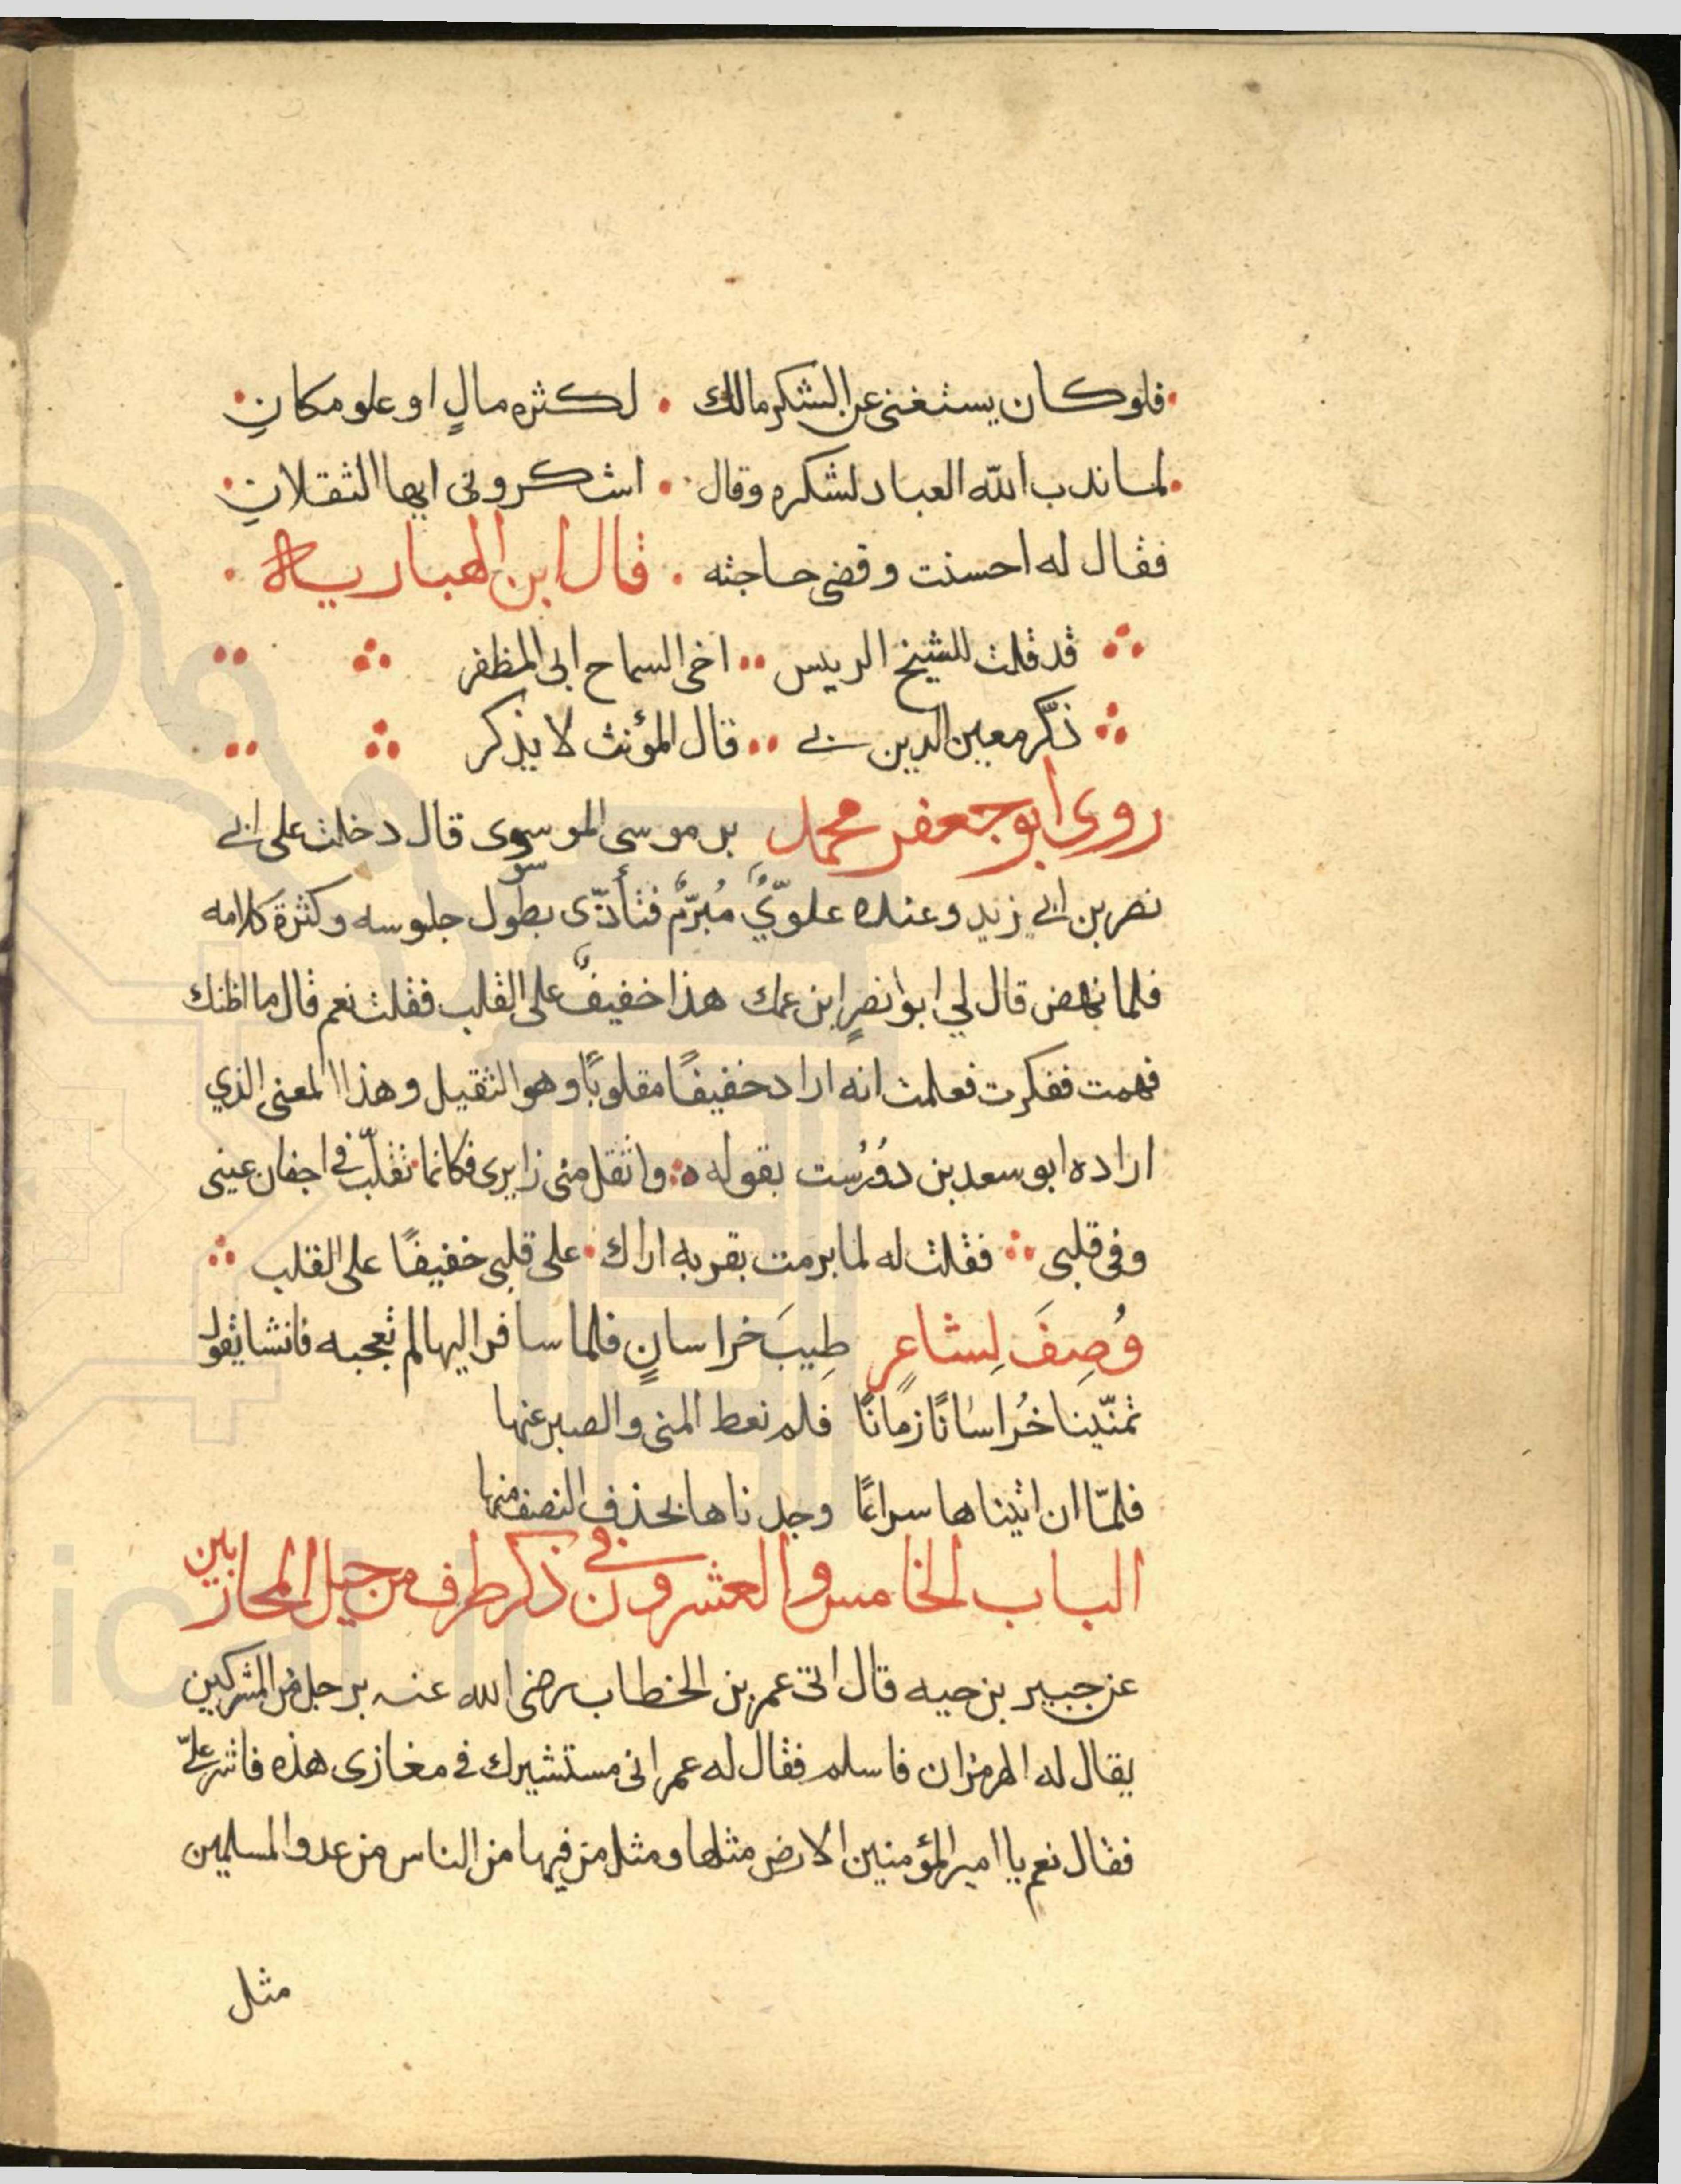 فلوكان يستغنى عن الشكر مالك لكثره مالٍ او علو مكانِ
لما ندب الله العباد لشكره وقال اشكرونى ايها الثقلانِ
فقال له احسنت وقضى حاجته قال ابن الهبارية
قد قلت للشيخ الرييس اخى السماح ابى المظفر
ذكّر معين الدين بى قال المؤنث لا يذكر
روى ابو جعفر محمد بن موسى الموسوى قال دخلت على ابى
نصر بن ابى زيد وعنده علويٌّ مُبرّمٌ فتأذّى بطول جلوسه وكثرة كلامه
فلما نهض قال لي ابوا نصرٍ ابن عمك هذا خفيفٌ على القلب فقلت نعم قال ما اظنك
فهمت ففكرت فعلمت انه اراد خفيفًا مقلوبًا وهو الثقيل وهذا المعنى الذي
اراده ابو سعد بن دوُرُست بقوله واثقل منى زايرى فكانما تقلّب فى اجفان عينى
وفى قلبى فقلت له لما برمت بقربه اراك على قلبى خفيفًا على القلب
وُصِفَ لِشاعرٍ طِيبَ خراسانٍ فلما سافر اليها لم تعجبه فانشا يقول
تمنّينا خُراسانًا زمانًا فلم نعط المنى والصبر عنها
فلمّا ان اتيناها سراعًا وجدناها بحذف النصف منها
الباب الخامس والعشرون فى ذكر طرف من حيل المحاربين
عن جبير بن حيه قال اتى عمر بن الخطاب رضى الله عنه برجل من المشركين
يقال له الهرمزان فاسلم فقال له عمر انى مستشيرك فى مغازى هذه فاشر علىّ
فقال نعم يا امير المؤمنين الارض مثلها ومثل من فيها من الناس من عدو المسلمين
مثل